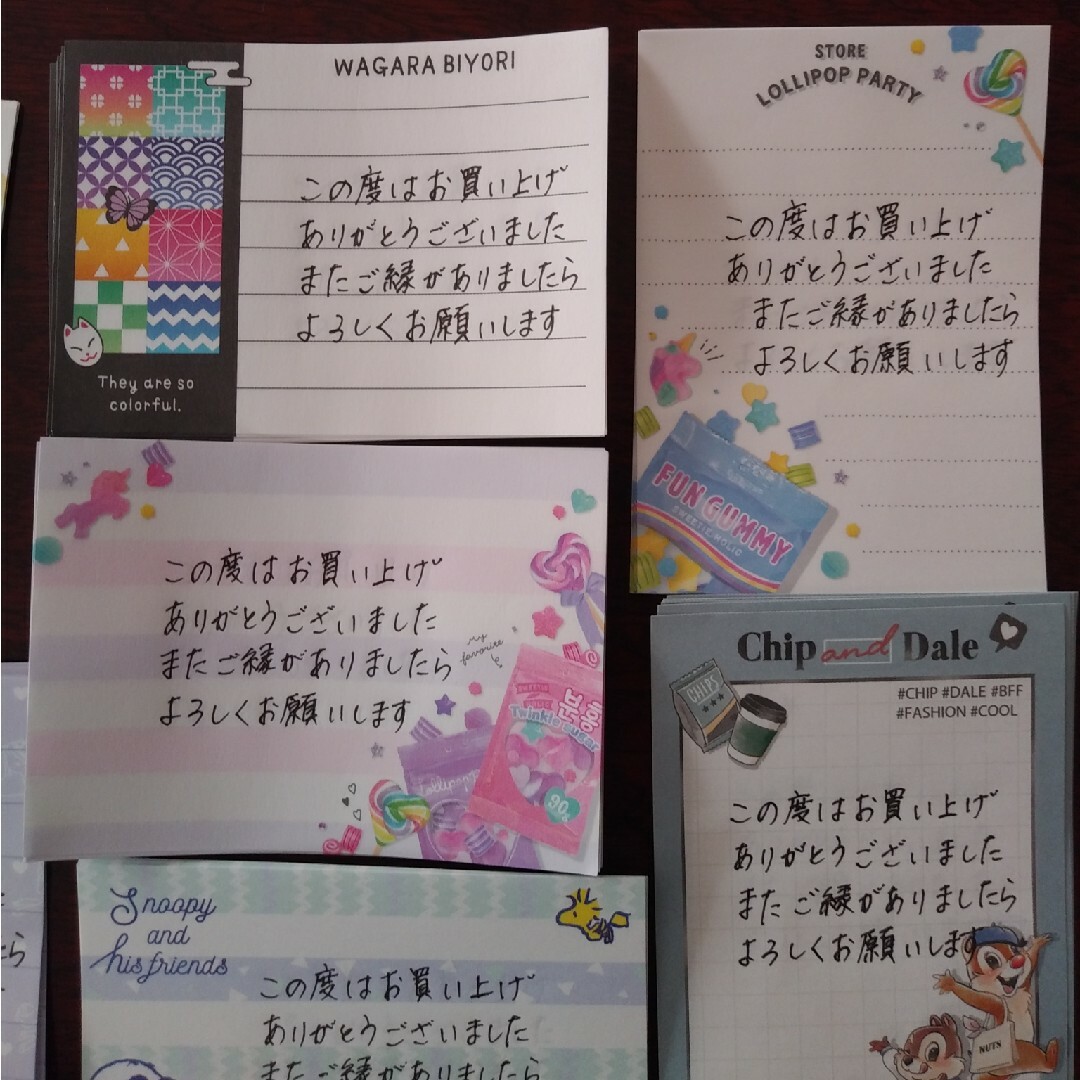 WAGARA BIYORI
この度はお買い上げ
ありがとうございました
またご縁がありましたら
よろしくお願いします
They are so
colorful.
STORE
LOLLIPOP PARTY
この度はお買い上げ
ありがとうございました
またご縁がありましたら
よろしくお願いします
FUN GUMMY
SWEETIE HOLIC
この度はお買い上げ
ありがとうございました
またご縁がありましたら
よろしくお願いします
my
favorite
분홍
Twinkle sugar
Lollipop
90%
Chip and Dale
#CHIP #DALE #BFF
#FASHION #COOL
CHIPS
この度はお買い上げ
ありがとうございました
またご縁がありましたら
よろしくお願いします
NUTS
Snoopy
and
his friends
この度はお買い上げ
ありがとうございました
またご縁がありましたら
ら